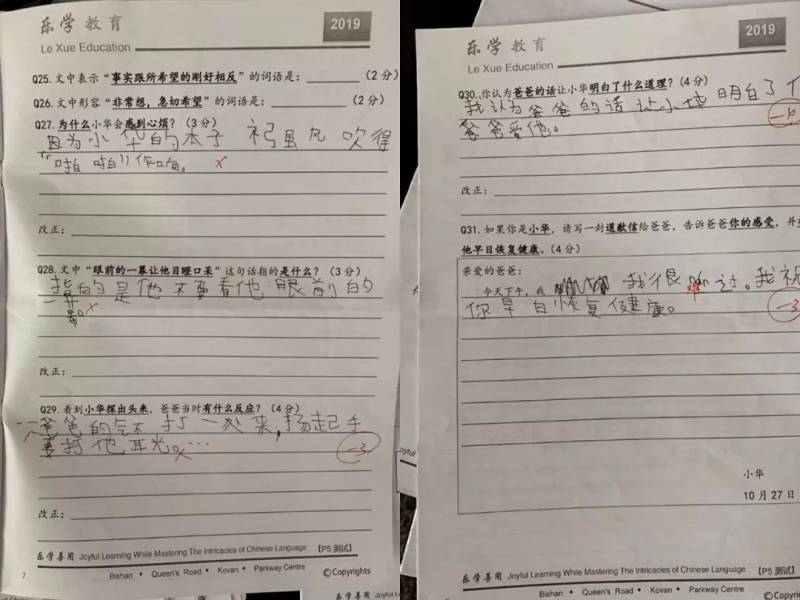 乐学教育
2019
Le Xue Education
Q25. 文中表示“事实跟所希望的刚好相反”的词语是：________（2 分）
Q26. 文中形容“非常想，急切希望”的词语是：________（2 分）
Q27. 为什么小华会感到心烦？（3 分）
因为小华的本子 被虽风吹得
“啪啪”作响。 x
改正：
Q28. 文中“眼前的一幕让他目瞪口呆”这句话指的是什么？（3 分）
指的是他不要看他眼前的
一幕。x
改正：
Q29. 看到小华探出头来，爸爸当时有什么反应？（4 分）
爸爸的气不打一处来，扬起手
要打他耳光。… x
-3
改正：
乐学善用 Joyful Learning While Mastering The Intricacies of Chinese Language 【P5 测试】
Bishan • Queen's Road • Kovan • Parkway Centre
©Copyrights
7
乐学教育
2019
Le Xue Education
Q30. 你认为爸爸的话让小华明白了什么道理？（4 分）
我认为爸爸的话让小华明白了
爸爸爱他。
改正：
Q31. 如果你是小华，请写一封道歉信给爸爸，告诉爸爸你的感受，并
他早日恢复健康。（4 分）
亲爱的爸爸：
今天下午，我 我很难过。我祝
你早日恢复健康。
-3
小华
10 月 27 日
乐学善用 Joyful Learning While Mastering The Intricacies of Chinese Language 【P5 测试】
Bishan • Queen's Road • Kovan • Parkway Centre